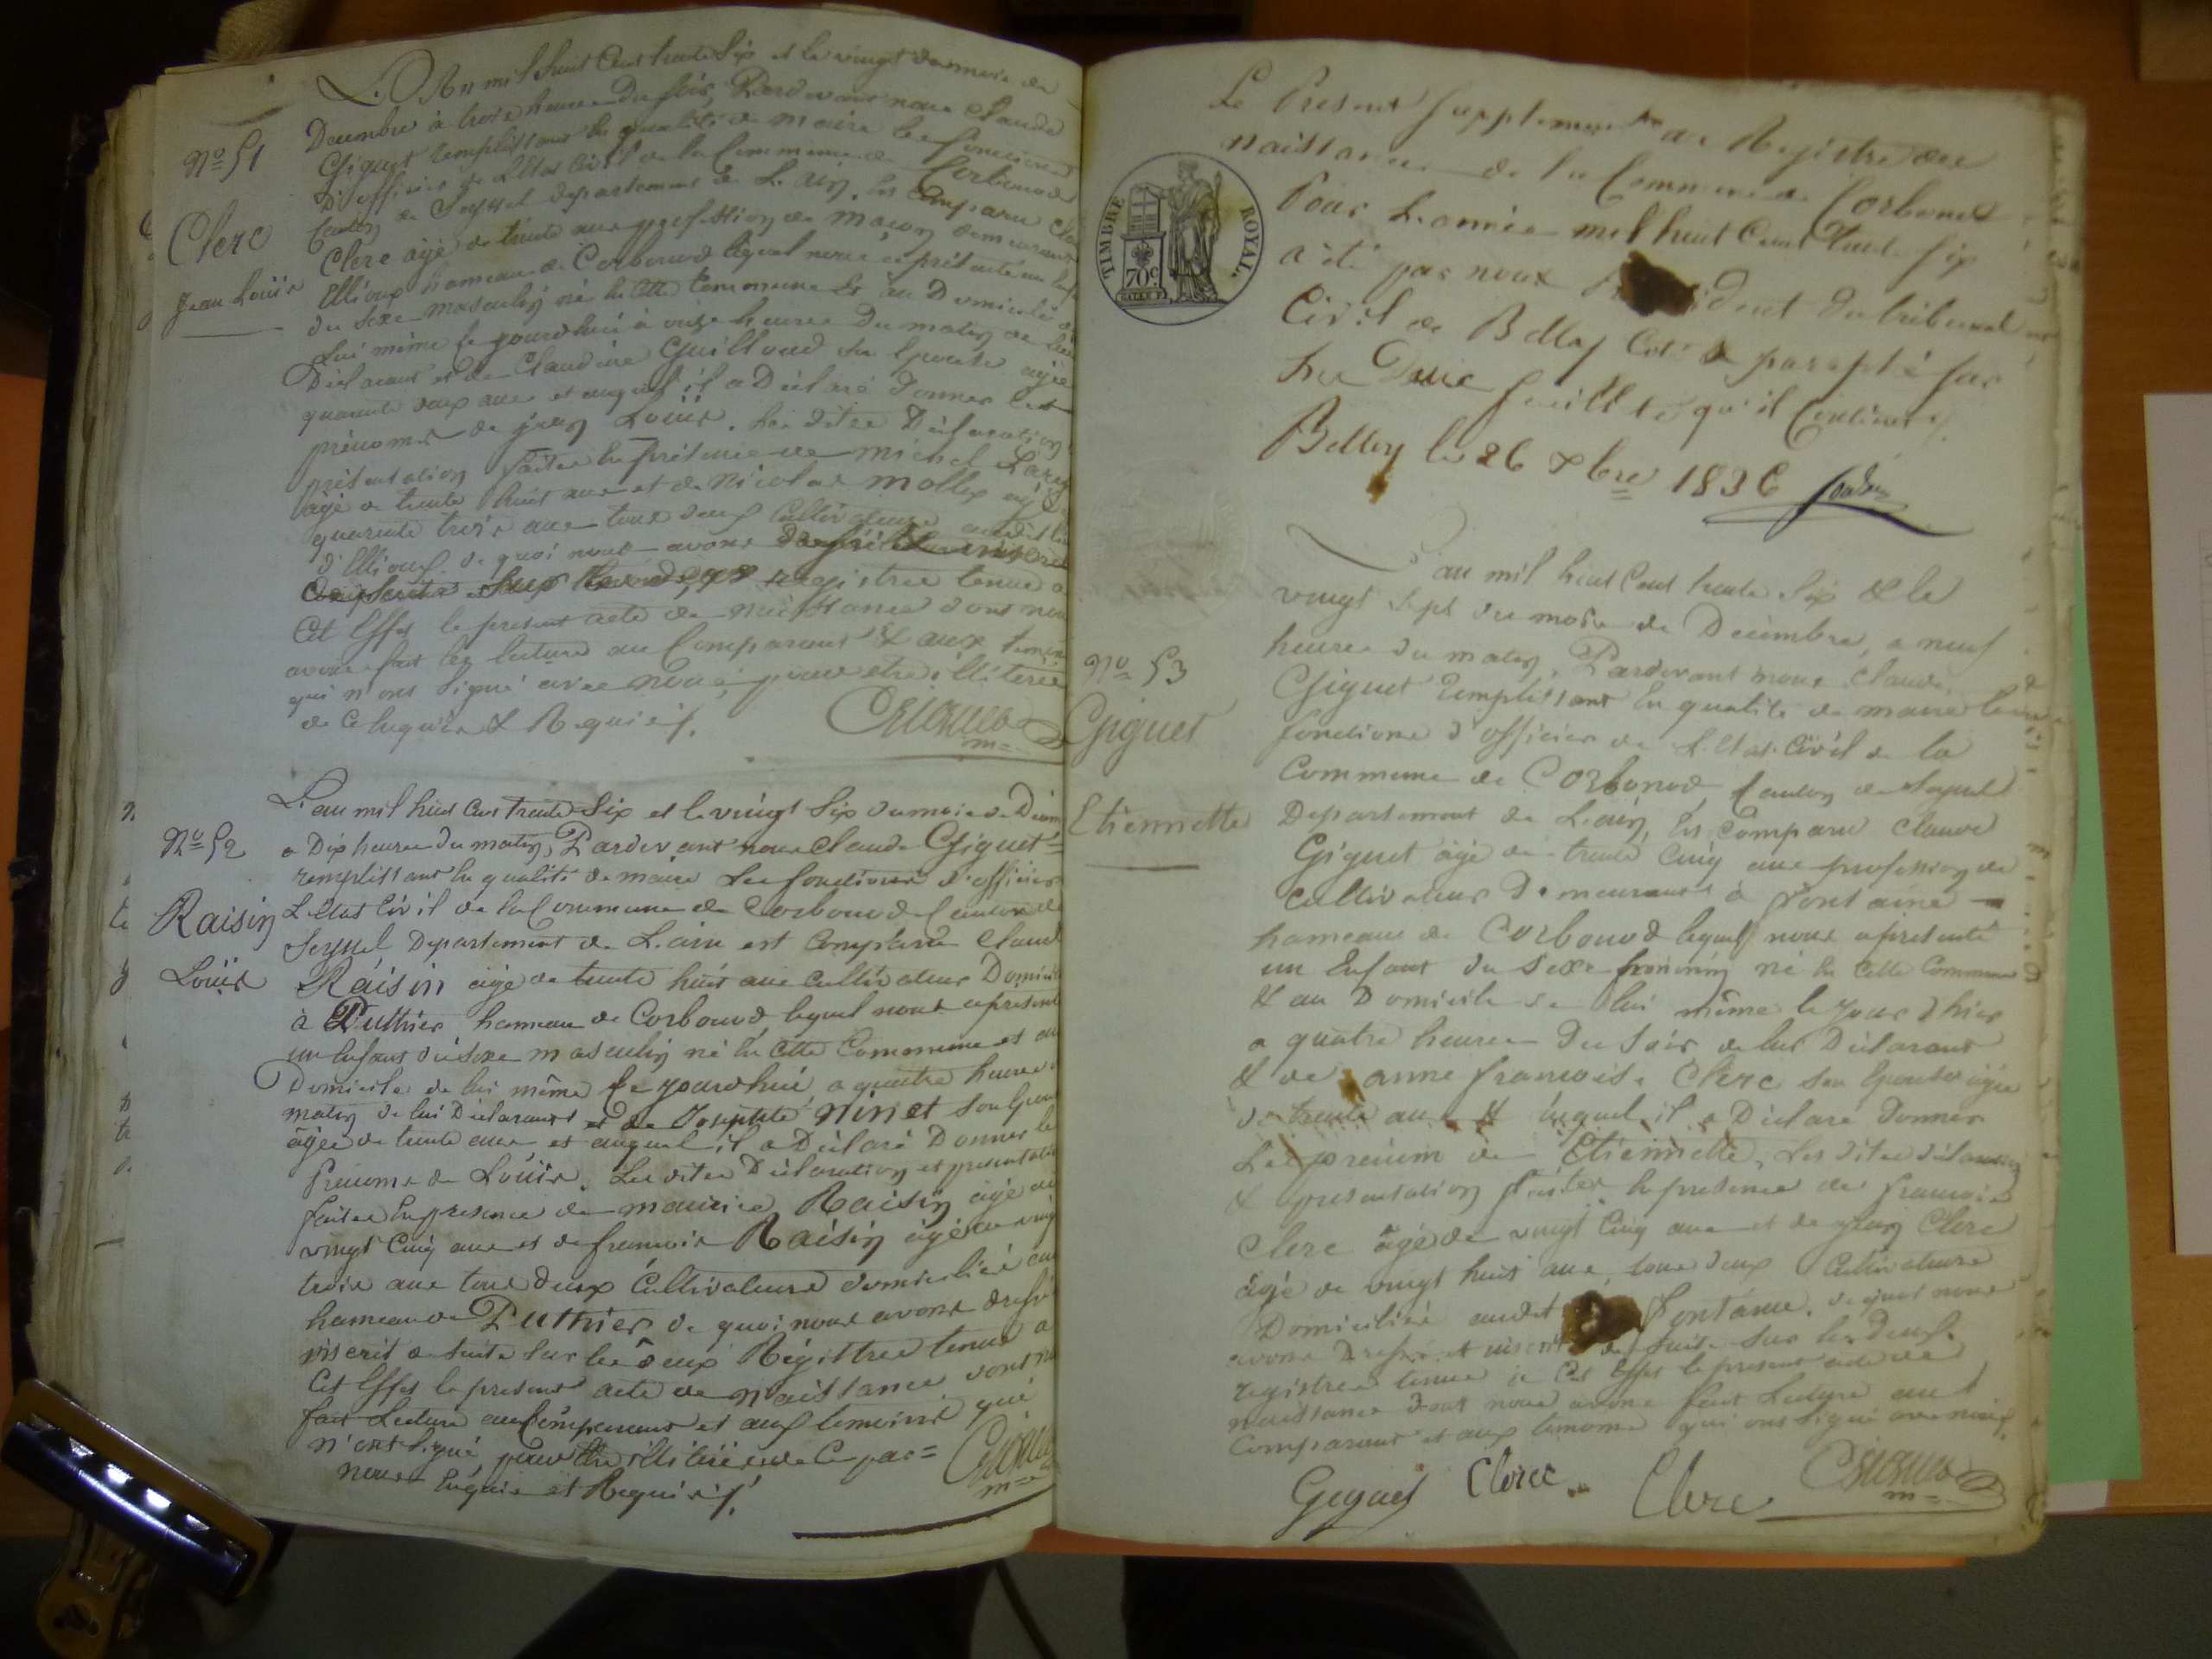 N.o 51
Clerc
Jean Louis
L'An mil huit Cent trente Six et le vingt du mois de
Décembre à trois heures du soir, Pardevant nous Claude
Giguet remplissant la qualité de maire les fonctions
D'officier de L'Etat Civil de la Commune de Corbonod
Canton de Seyssel departement de L'ain. Est Comparu
Clerc âgé de trente ans profession de maçon demeurant
Ellioux hameau de Corbonod lequel nous a présenté un
du Sexe masculin né en Cette Commune & au Domicile de
Lui même Ce jourdhui à onze heures Du matin de lui
Déclarant et de Claudine Guilloud Son Epouse âgée
quarante deux ans et auquel il a Déclaré donner les
prénoms de jean Louis. Les dites Déclaration
présentation faites En présence de michel
âgé de trente huit ans et de Nicolas mollex âgé
quarante trois ans tous deux Cultivateurs audit
d'Ellioux. de quoi nous avons
registres tenus a
Cet Effet le present acte de naissance dont nous
avons fait la lecture au Comparant & aux temoins
qui n'ont Signé avec nous, pour être illitérés
de Ce Enquis & Requis.
Giguet
m=
N.o 52
Raisin
Louis
L'an mil huit Cent trente Six et le vingt Six du mois de
a Dix heures du matin, Pardevant nous Claude Giguet
remplissant la qualité de maire Les fonctions d'officier
L'Etat Civil de la Commune de Corbonod Canton de
Seyssel, Departement de L'ain est Comparu Claude
Raisin âgé de trente huit ans Cultivateur
à Puthier hameau de Corbonod lequel nous a présenté
un Enfant du Sexe masculin né En Cette Commune et au
Domicile de lui même Ce jourdhui a quatre heures
matin de lui Déclarant et de Josephte Ninet Son
âgée de trente ans et auquel il a Déclaré Donner le
Prenoms de Louis. Les dites Déclaration et
faites En presence de maurice Raisin âgé de
vingt Cinq ans et de francois Raisin âgé de vingt
trois ans tous deux Cultivateurs domiciliés au
hameau de Puthier de quoi nous avons dressé
inscrit de Suite Sur les deux Régistres tenus a
Cet Effet le present acte de Naissance dont
fait Lecture au Comparant et aux temoins qui
n'ont Signé, pour être illitérés de Ce par=
nous Enquis et Requis.
Giguet
m=
Le Present Supplement au Registre des
naissances de la Commune de Corbonod
Pour L'année mil huit Cent trente Six
a été par nous Président du tribunal
Civil de Belley Coté & paraphé sur
feuillets qu'il Contient.
Belley le 26 Xbre 1836
TIMBRE ROYAL.
70c.
N.o 53
Giguet
Etiennette
L'an mil huit Cent trente Six & le
vingt Sept du mois de Decembre, a neuf
heures du matin, Pardevant nous Claude
Giguet Remplissant la qualité de maire les
fonctions d'officier de L'Etat Civil de la
Commune de Corbonod Canton de Seyssel
Departement de L'ain, Est Comparu Claude
Giguet âgé de trente Cinq ans profession de
Cultivateur Demeurant à fontaine
hameau de Corbonod lequel nous a présenté
un Enfant du Sexe féminin né En Cette Commune
& au Domicile de lui même le jour d'hier
a quatre heures Du Soir de lui Déclarant
& de anne francoise Clerc Son Epouse âgée
de trente ans & auquel il a Déclaré donner
Le prénom de Etiennette, Les dites
& presentation faites En presence de francois
Clerc âgé de vingt Cinq ans et de jean Clerc
âgé de vingt huit ans, tous deux Cultivateurs
Domiciliés audit fontaine. de quoi nous
avons Dressé et inscrit de Suite Sur les deux
registres tenus à Cet Effet le present acte de
naissance dont nous avons fait Lecture au
Comparant et aux temoins qui ont Signé avec nous.
Giguet Clerc Clerc Giguet
m=